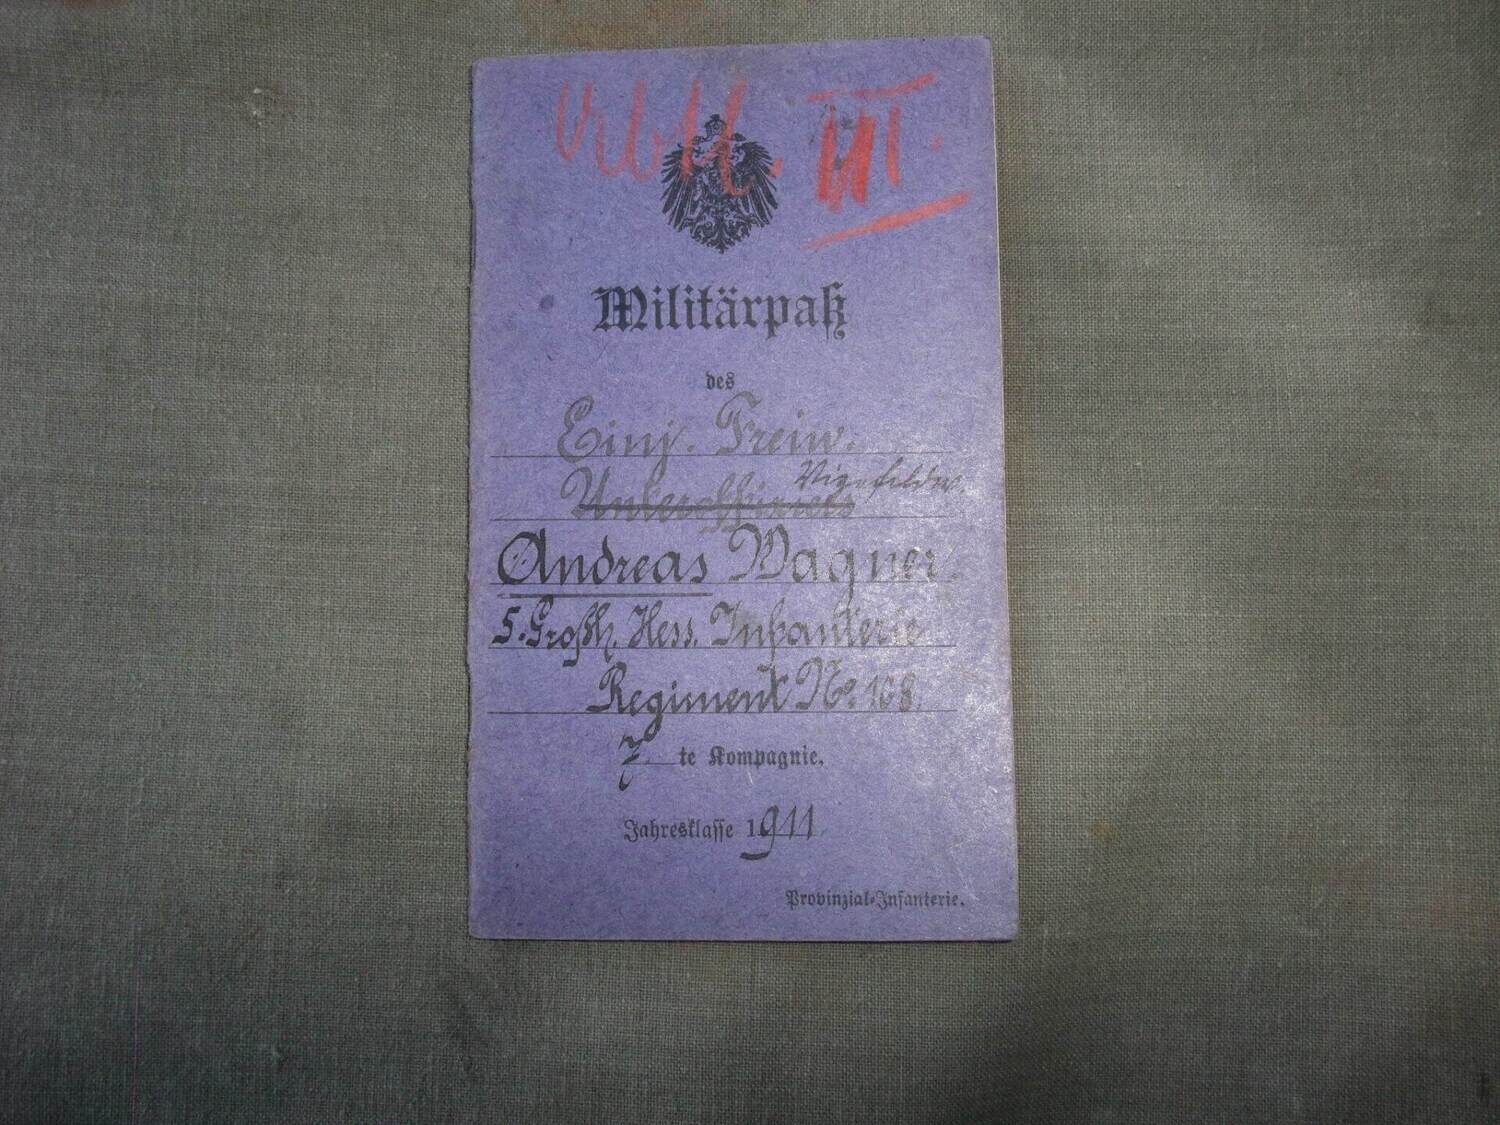 III.
Militärpaß
des
Einj. Freiw.
Unteroffiziers Vizefeldw.
Andreas Wagner.
5. Großh. Hess. Infanterie
Regiment No. 168.
7 te Kompagnie.
Jahresklasse 1911.
Provinzial-Infanterie.